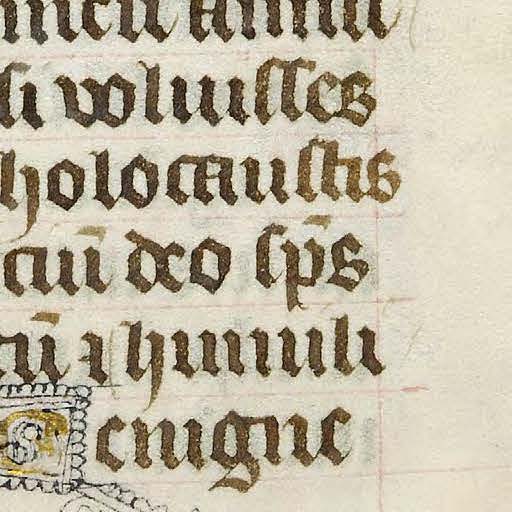 meū annu
si voluisses
holocaustis
ciū deo sp̄s
tū ⁊ humili
Benigne